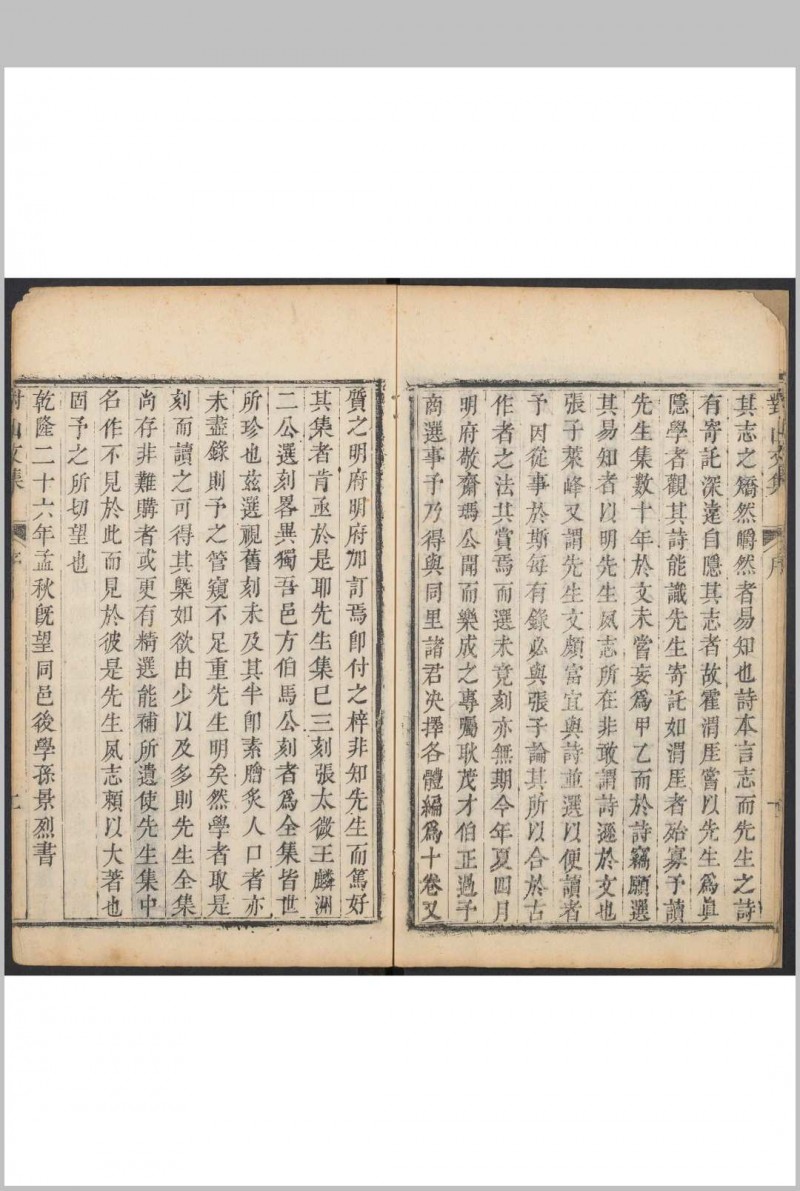 對山文集
序
其志之矯然皭然者易知也詩本言志而先生之詩
有寄託深遠自隱其志者故霍渭厓嘗以先生為眞
隱學者觀其詩能識先生寄託如渭厓者殆寡予讀
先生集數十年於文未嘗妄為甲乙而於詩竊願選
其易知者以明先生夙志所在非敢謂詩遜於文也
張子萊峰又謂先生文頗富宜與詩並選以便讀者
予因從事於斯每有錄必與張子論其所以合於古
作者之法其賞焉而選未竟刻亦無期今年夏四月
明府敬齋瑪公聞而樂成之專囑耿茂才伯正過予
商選事予乃得與同里諸君决擇各體編為十卷又
質之明府明府加訂焉卽付之梓非知先生而篤好
其集者肯亟於是耶先生集已三刻張太微王麟洲
二公選刻畧異獨吾邑方伯馬公刻者為全集皆世
所珍也兹選視舊刻未及其半卽素膾炙人口者亦
未盡錄則予之管窺不足重先生明矣然學者取是
刻而讀之可得其槩如欲由少以及多則先生全集
尚存非難購者或更有精選能補所遺使先生集中
名作不見於此而見於彼是先生夙志賴以大著也
固予之所切望也
乾隆二十六年孟秋旣望同邑後學孫景烈書
對山文集
序
二